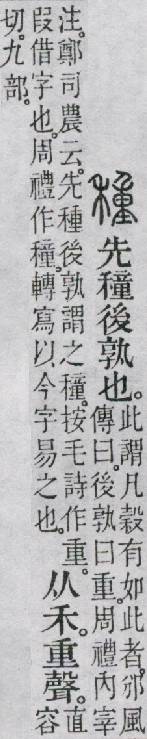 種先穜後孰也。
此謂凡穀有如此者。邠風
傳曰。後孰曰重。周禮內宰
注。鄭司農云。先種後孰謂之種。按毛詩作重。
叚借字也。周禮作種。轉寫以今字易之也。
从禾。重聲。
直容
切。九部。